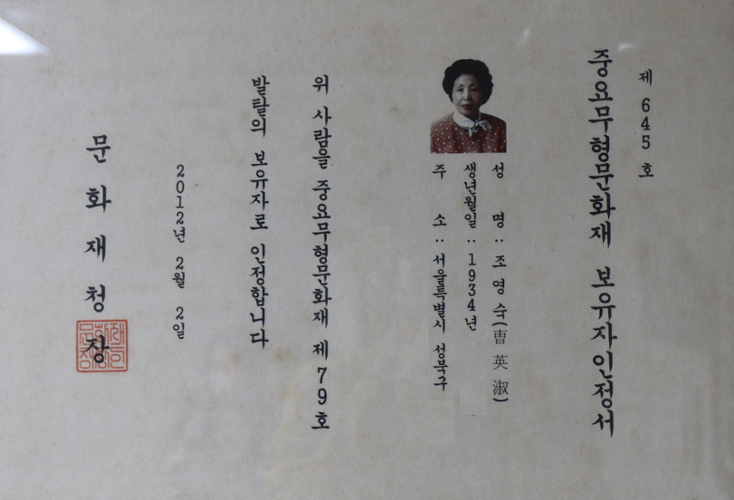 제 645 호
중요무형문화재 보유자인정서
성 명 : 조영숙(曺英淑)
생년월일 : 1934년
주 소 : 서울특별시 성북구
위 사람을 중요무형문화재 제79호
발탈의 보유자로 인정합니다
2012년 2월 2일
문화재청장